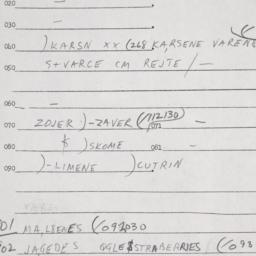 020 —
030
060 )KARSN XX (268 KARSENE VARENE
050 S+VARCE CM REJTE/—
060 —
070 ZOJER )-ZAVER (112130) —
071
$ )SKOME 081 —
090 )-LIMENE )CUTRIN
01 MALJENES (092030
02 JAGEDES GGLE$STRABERRIES (093